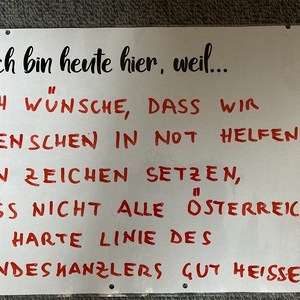 ch bin heute hier, weil...
H WÜNSCHE, DASS WIR
ENSCHEN IN NOT HELFEN
N ZEICHEN SETZEN,
SS NICHT ALLE ÖSTERREIC
HARTE LINIE DES
NDESKANZLERS GUT HEISSE